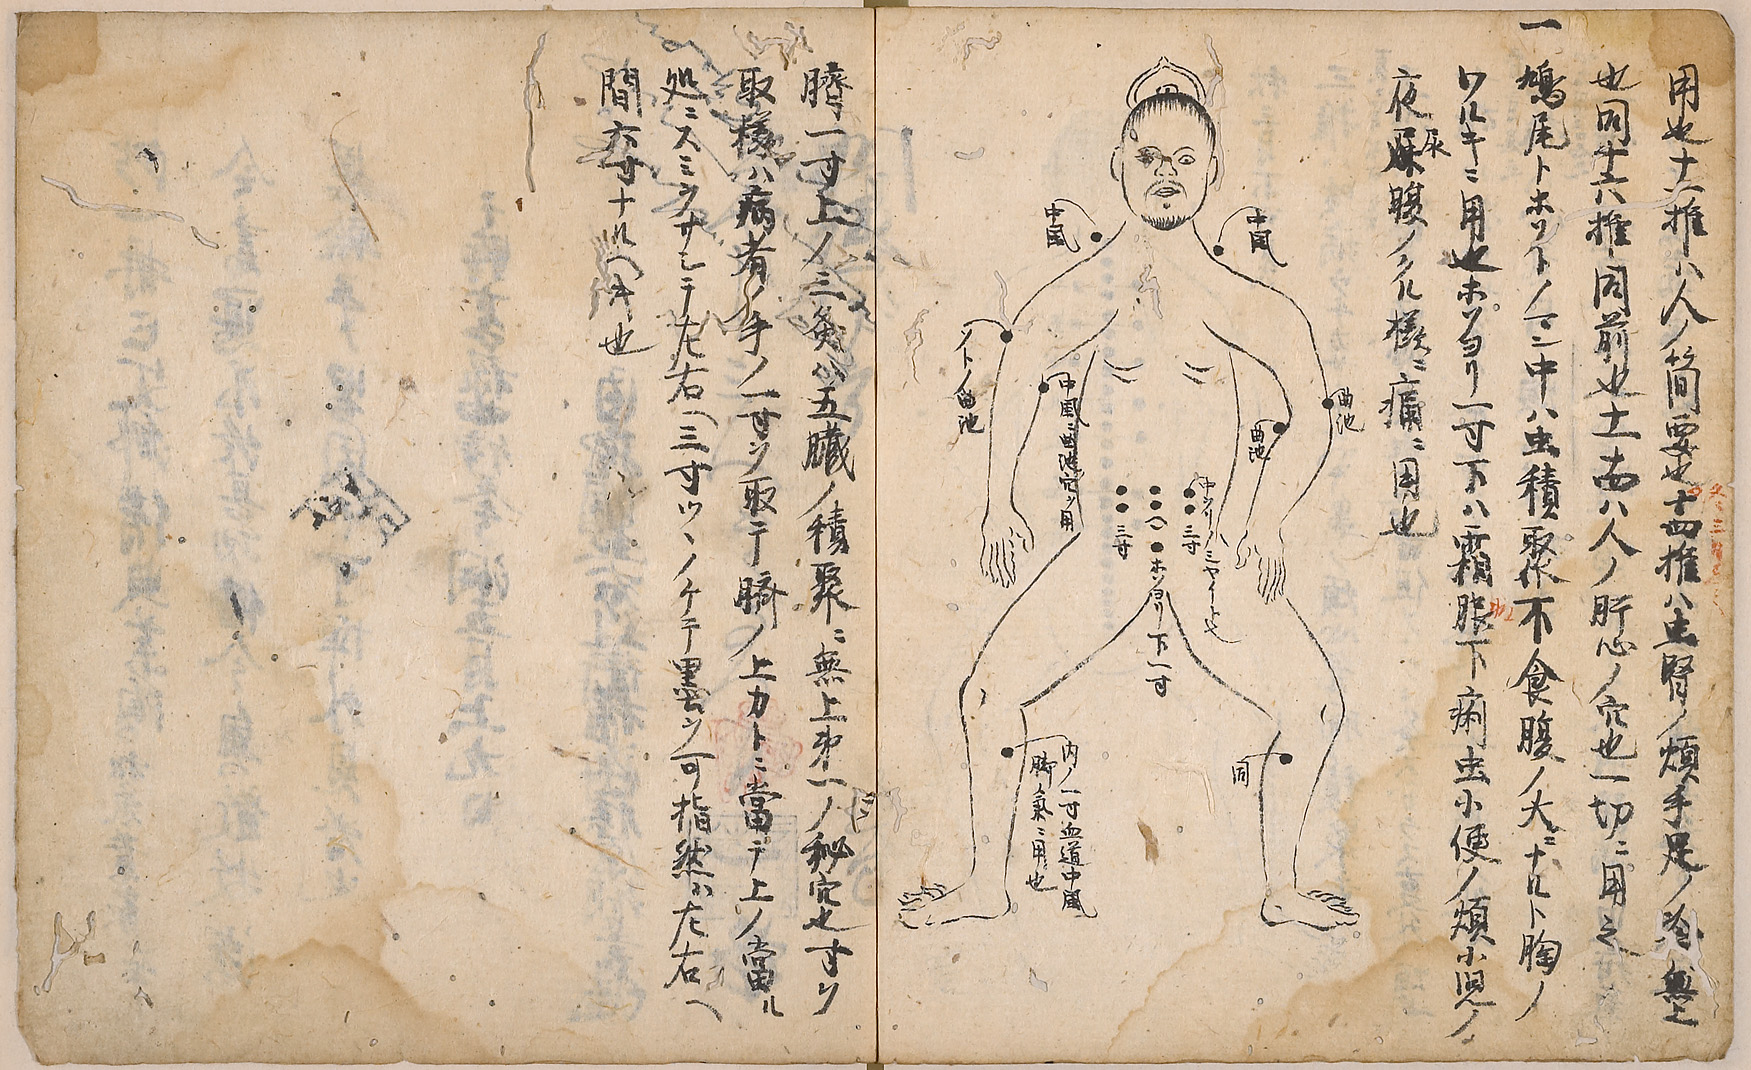 用也十一推ハ人ノ簡要也十四推ハ虫腎ノ煩手足ノ冷無上
也同十六ハ推同前也十一ハ人ノ肝心ノ穴也一切ニ用之
一鳩尾トホソトノ三中ハ虫積聚不食腹ノ大ニナルト胸ノ
ワルキニ用也ホソヨリ一寸下ハ霜腹下痢虫小便ノ煩小児ノ
夜尿腹ノクル様ニ痛ニ用也
中風
中風
曲池
曲池
ノトノ曲池
中風ニ曲池穴ヲ用
三寸
三寸
ホソヨリ下一寸
同
内ノ一寸血道中風
脚氣ニ用也
臍一寸上ノ三灸ハ五臓ノ積聚ニ無上第一ノ秘穴也寸ヲ
取様ハ病者ノ手ノ一寸ヲ取テ臍ノ上カトニ當テ上ノ當ル
処ニスミヲサシテ左右ヘ三寸ツヽノケテ墨ヲ可指然ハ左右ヘ
間六寸ナルヘキ也